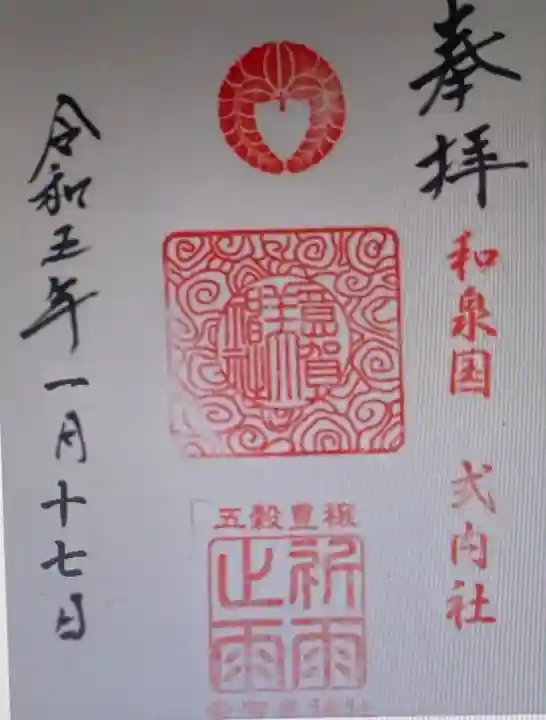 奉拝
和泉国 式内社
意賀美神社
五穀豊穣
祈雨
止雨
令和五年一月十七日